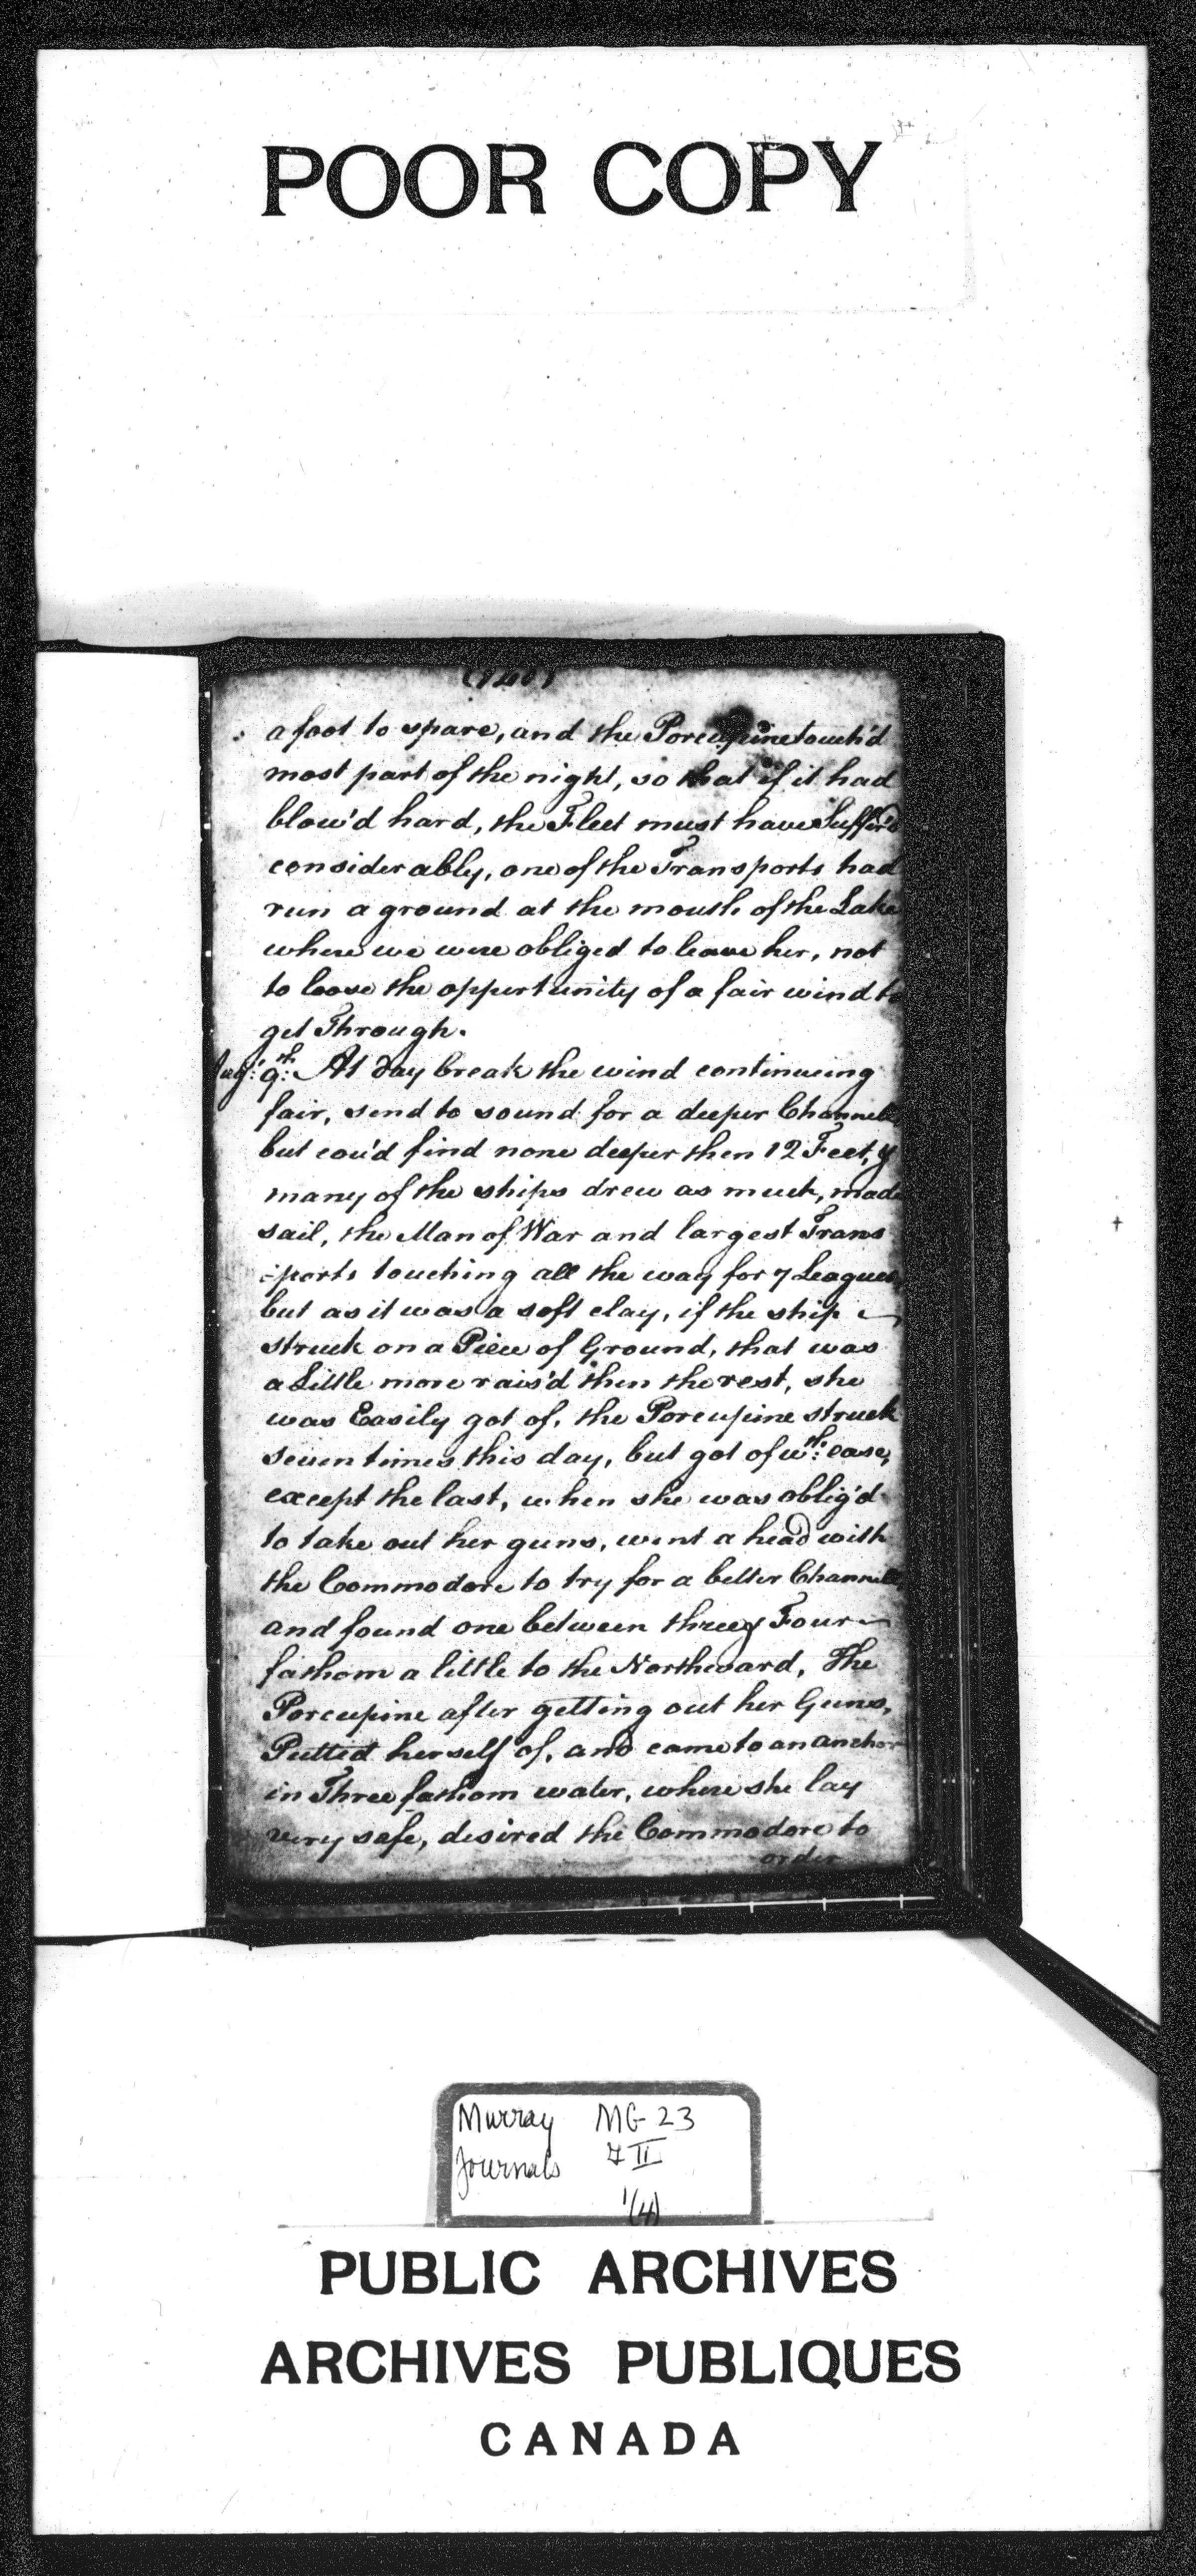 POOR COPY
(140)
a foot to spare, and the Porcupine touch'd
most part of the night, so that if it had
blow'd hard, the Fleet must have Suffer'd
considerably, one of the Transports had
run a ground at the mouth of the Lake
where we were obliged to leave her, not
to loose the oppertunity of a fair wind to
get Through.
Aug: 9th: At day break the wind continueing
fair, send to sound for a deeper Channell,
but cou'd find none deeper then 12 Feet, &
many of the ships drew as much, made
sail, the Man of War and largest Trans
:ports touching all the way for 7 Leagues,
but as it was a soft clay, if the ship
struck on a Piece of Ground, that was
a Little more rais'd then the rest, she
was Easily got of, the Porcupine struck
seven times this day, but got of wth: ease,
except the last, when she was oblig'd
to take out her guns, went a head with
the Commodore to try for a better Channell,
and found one between three & Four
fathom a little to the Northward, The
Porcupine after getting out her Guns,
Pulled herself of, and came to an anchor
in Three fathom water, where she lay
very safe, desired the Commodore to
order
Murray MG 23
Journals II
1(4)
PUBLIC ARCHIVES
ARCHIVES PUBLIQUES
CANADA